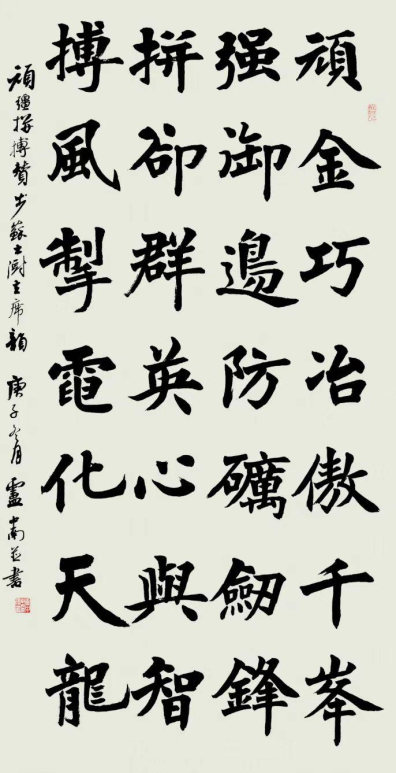 頑金巧冶傲千峯
强御邊防礪劒鋒
拼卻群英心與智
搏風掣電化天龍
頑強拼搏贊步蘇士澍主席韻 庚子冬月 盧尚並書